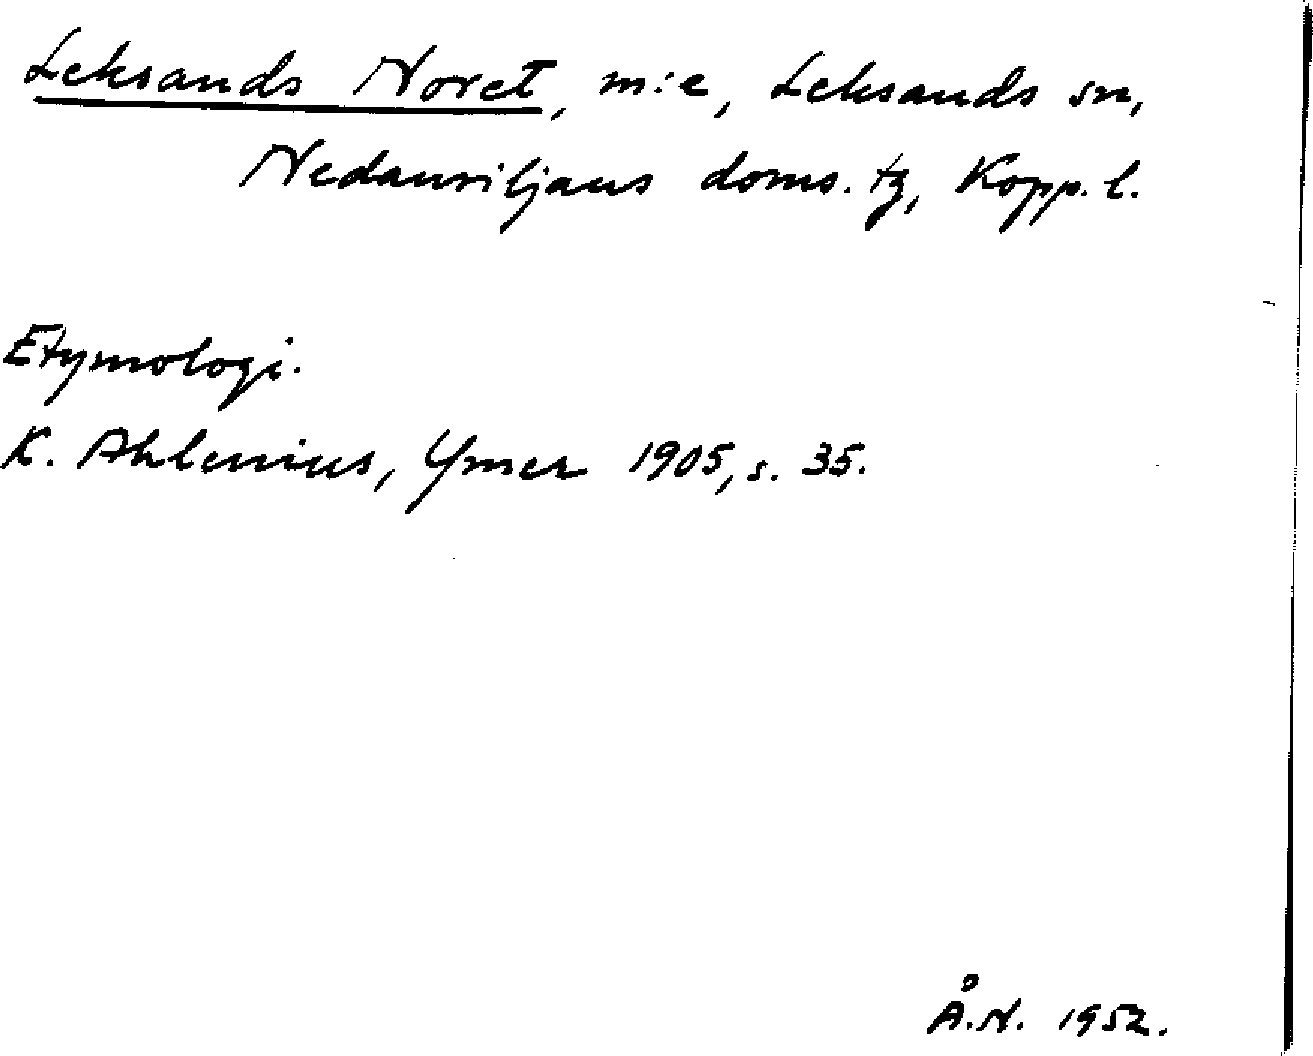 Leksands Noret, m:e, Leksands sn,
Nedansiljans doms. tg, Kopp. l.
Etymologi.
K. Ahlenius, Ymer 1905, s. 35.
Å.N. 1952.